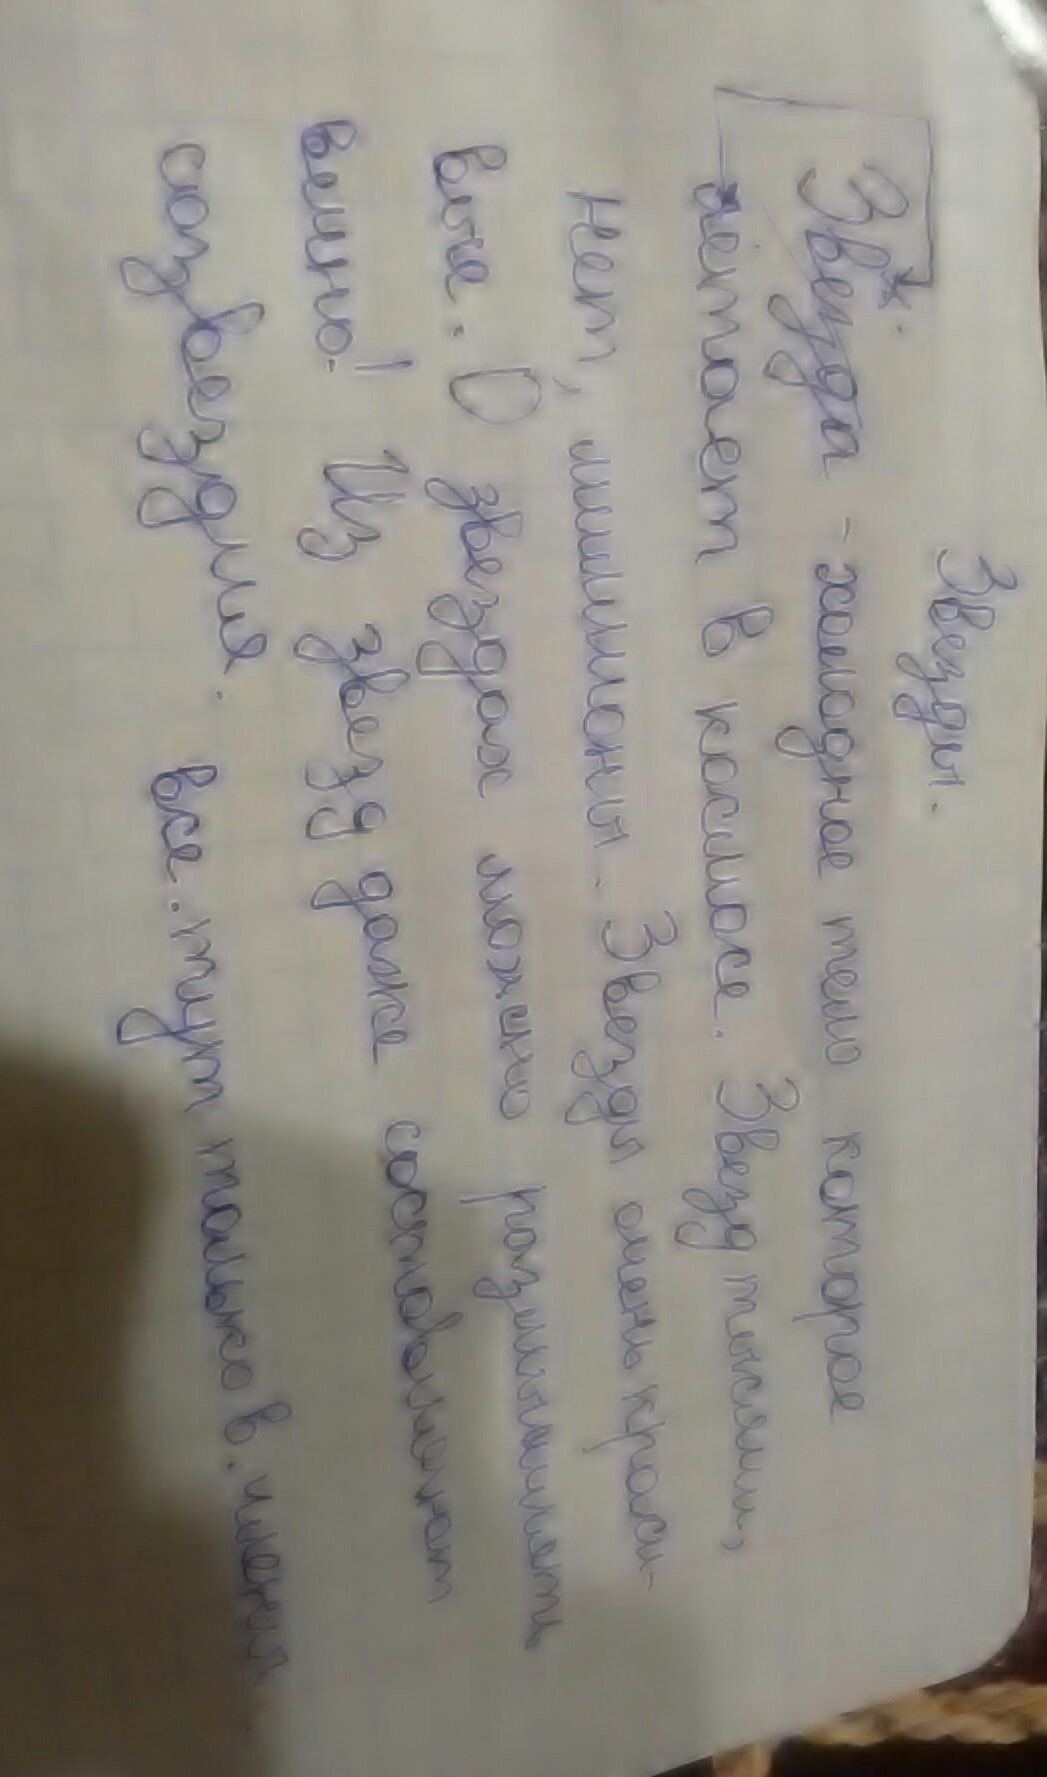 Звезды.
Звезда - холодное тело которое
летает в космосе. Звезд тысячи,
нет, миллионы. Звезды очень краси-
вые. О звездах можно размышлять
вечно! Из звезд даже составляют
созвездие. все. тут только в.